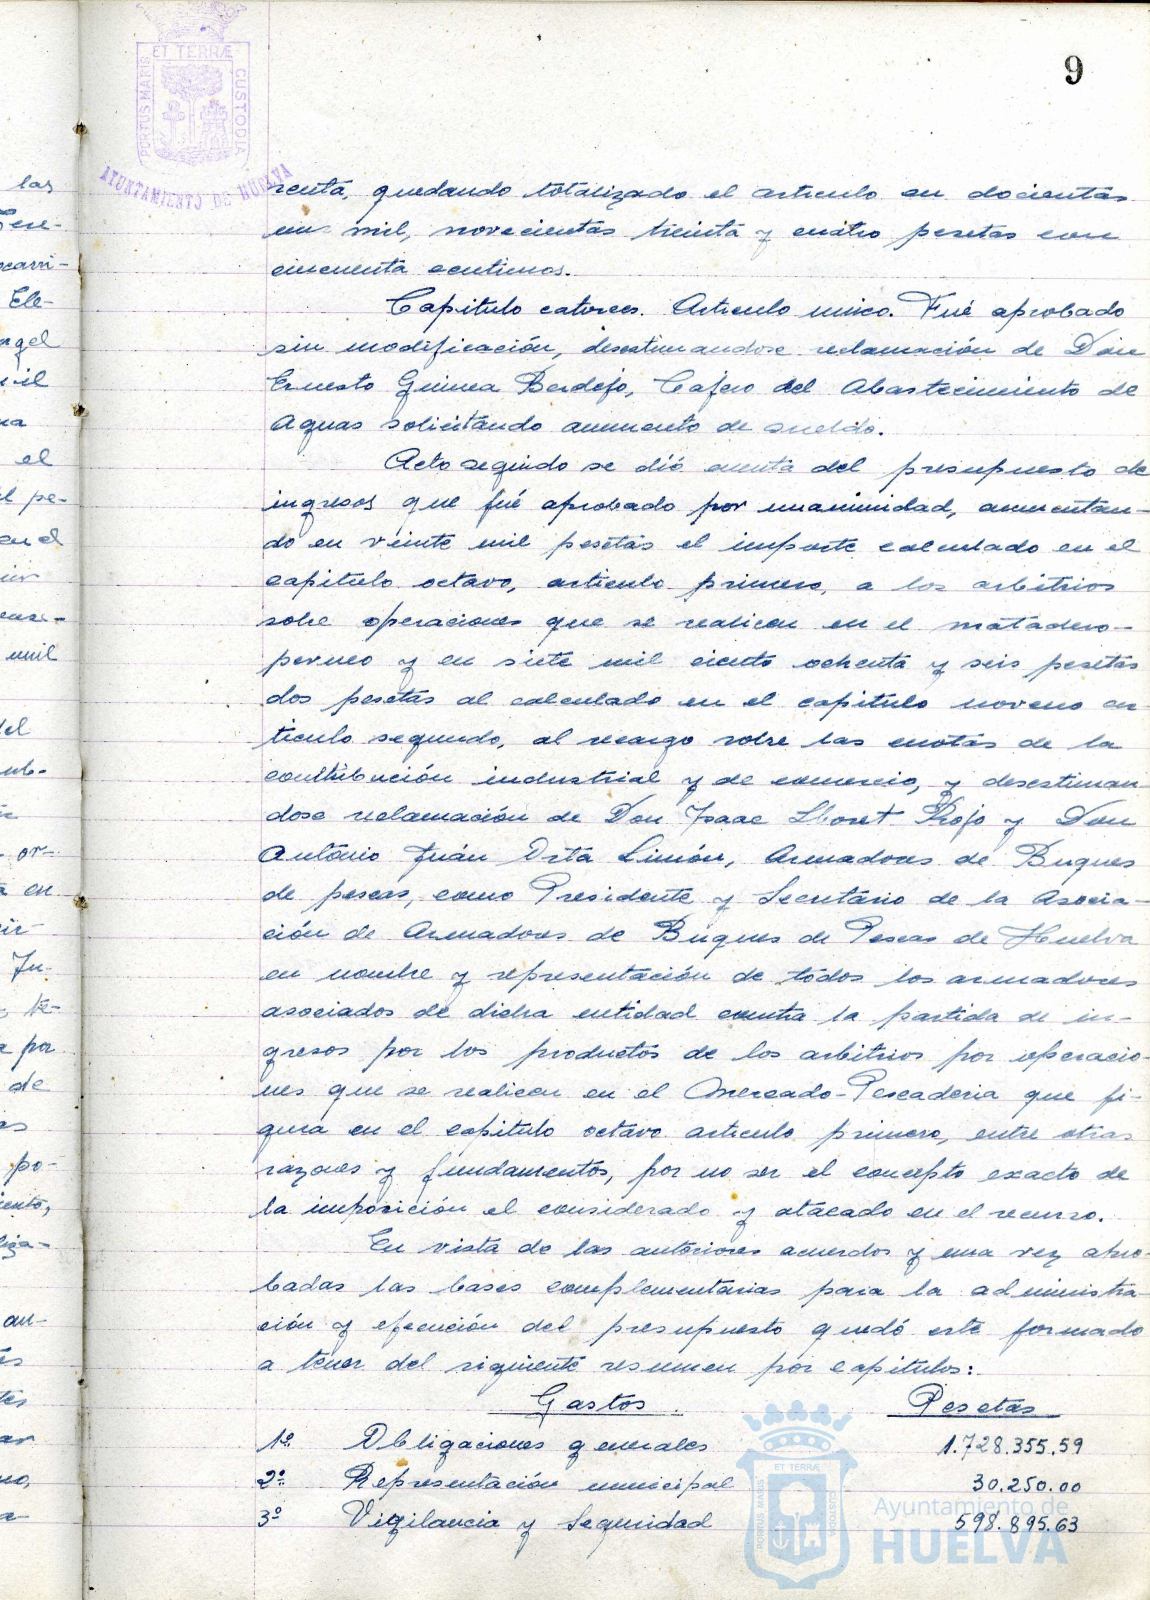 9
PORTUS MARIS ET TERRÆ CUSTODIA
AYUNTAMIENTO DE HUELVA
renta, quedando totalizado el articulo en docientas
un mil, novecientas treinta y cuatro pesetas con
cincuenta centimos.
Capitulo catorce. Articulo unico. Fué aprobado
sin modificación, desestimandose reclamación de Don
Ernesto Guinea Berdejo, Cajero del Abastecimiento de
Aguas solicitando aumento de sueldo.
Acto seguido se dió cuenta del presupuesto de
ingresos que fué aprobado por unanimidad, aumentan-
do en veinte mil pesetas el importe calculado en el
capitulo octavo, articulo primero, a los arbitrios
sobre operaciones que se realicen en el matadero-
poruno y en siete mil ciento ochenta y seis pesetas
dos pesetas al calculado en el capitulo noveno ar-
ticulo segundo, al recargo sobre las cuotas de la
contribución industrial y de comercio, y desestiman-
dose reclamación de Don Isaac Lloret Rojo y Don
Antonio Juán Orta Limón, Armadores de Buques
de pescas, como Presidente y Secretario de la Asocia-
ción de Armadores de Buques de Pescas de Huelva
en nombre y representación de todos los armadores
asociados de dicha entidad contra la partida de in-
gresos por los productos de los arbitrios por operacio-
nes que se realicen en el Mercado-Pescaderia que fi-
gura en el capitulo octavo articulo primero, entre otras
razones y fundamentos, por no ser el concepto exacto de
la imposición el considerado y atacado en el recurso.
En vista de las anteriores acuerdos y una vez apro-
badas las bases complementarias para la administra-
ción y ejecución del presupuesto quedó este formado
a tenor del siguiente resumen por capitulos:
Gastos. Pesetas
1º. Obligaciones generales 1.728.355,59
2º. Representación municipal 30.250.00
3º Vigilancia y Seguridad 598.895.63
Ayuntamiento de
HUELVA